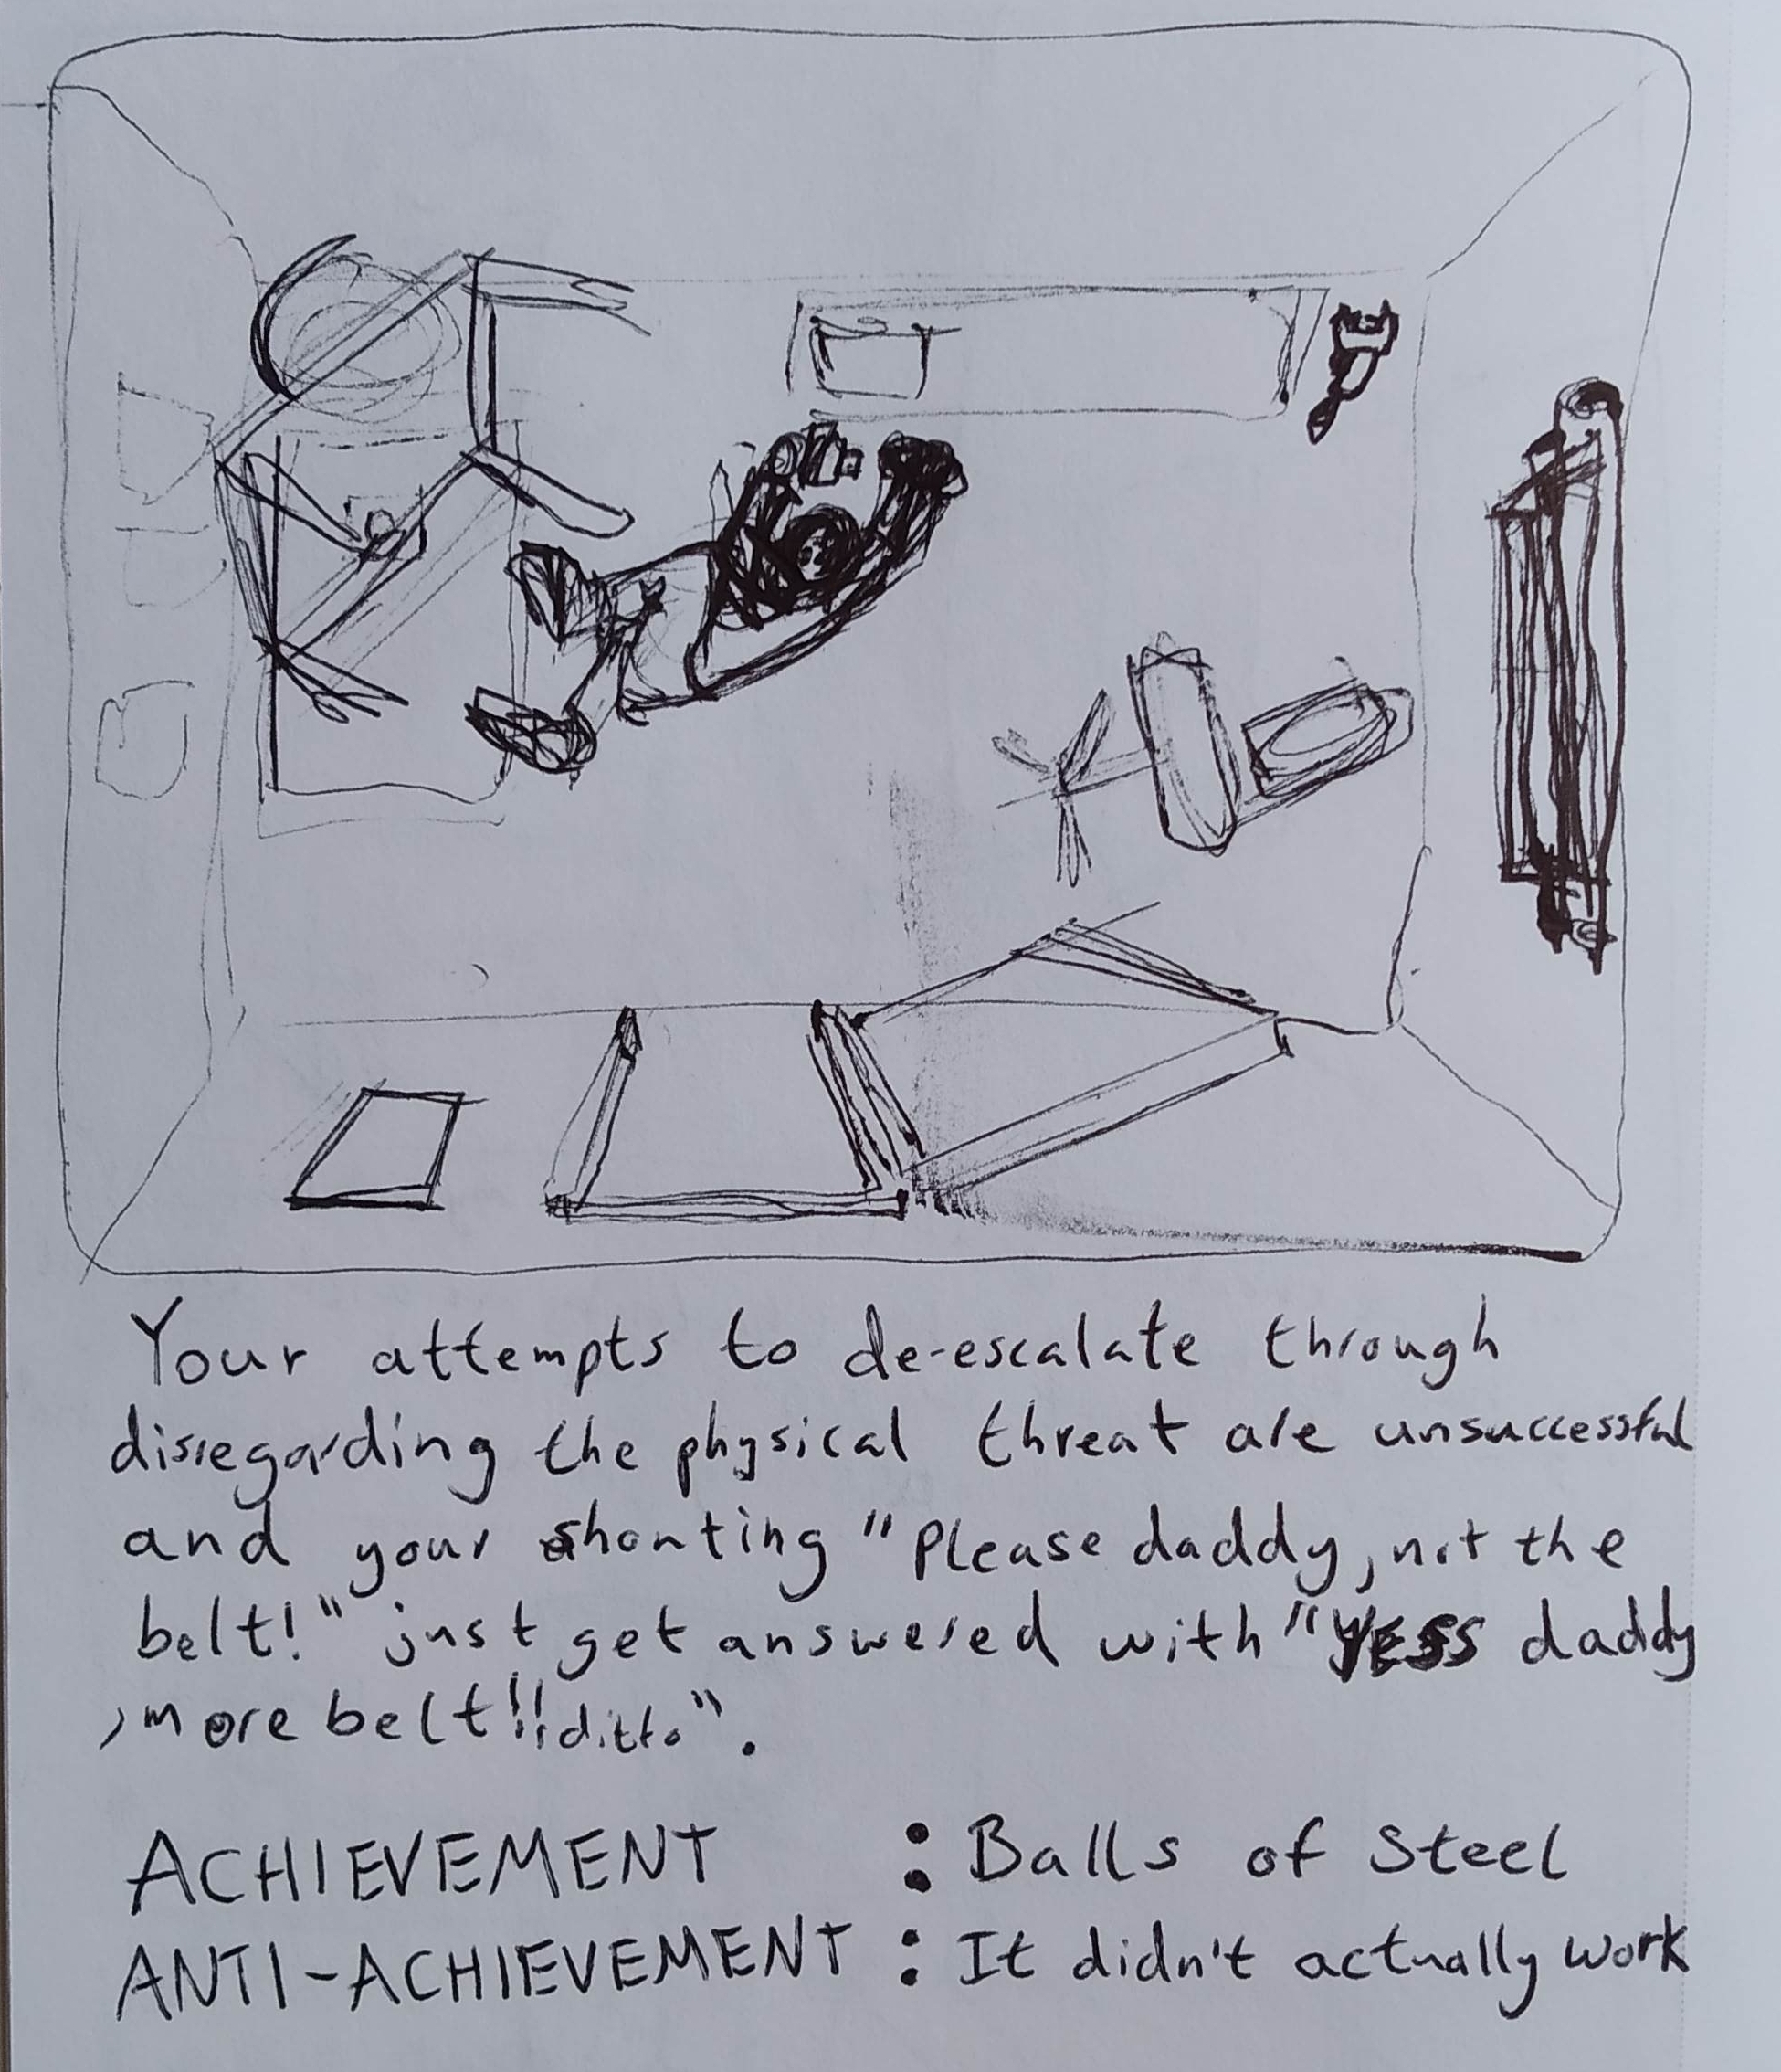 Your attempts to de-escalate through
disregarding the physical threat are unsuccessful
and your shouting "Please daddy, not the
belt!" just get answered with "YESS daddy
, more belt!! ditto".
ACHIEVEMENT : Balls of Steel
ANTI-ACHIEVEMENT : It didn't actually work